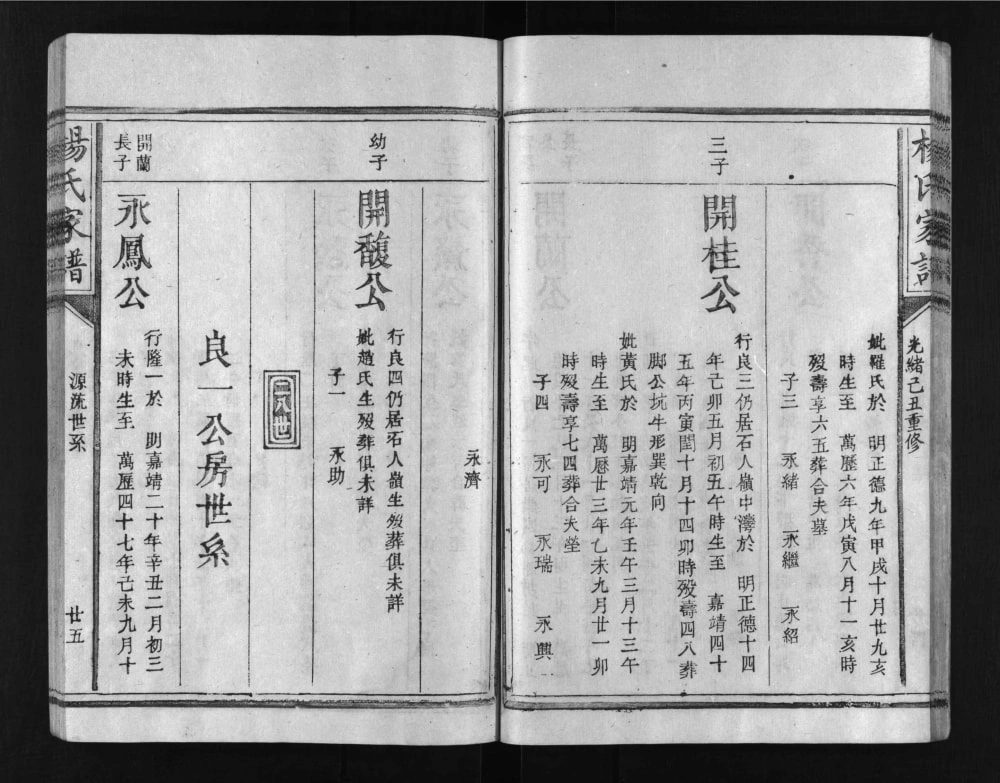 楊氏家譜
光緒己丑重修
妣羅氏於 明正德九年甲戌十月廿九亥
時生至 萬歷六年戊寅八月十一亥時
殁壽享六五葬合夫墓
子三 永緒 永繼 永紹
三子
開桂公
行良三仍居石人嶺中灣於 明正德十四
年己卯五月初五午時生至 嘉靖四十
五年丙寅閏十月十四卯時殁壽四八葬
脚公坑牛形巽乾向
妣黃氏於 明嘉靖元年壬午三月十三午
時生至 萬厯廿三年乙未九月廿一卯
時殁壽享七四葬合夫塋
子四 永可 永瑞 永興
永濟
幼子
開馥公
行良四仍居石人嶺生殁葬俱未詳
妣趙氏生殁葬俱未詳
子一 永助
二八世
良一公房世系
開蘭
長子
永鳳公
行隆一於 明嘉靖二十年辛丑二月初三
未時生至 萬歷四十七年己未九月十
楊氏家譜
源流世系
廿五